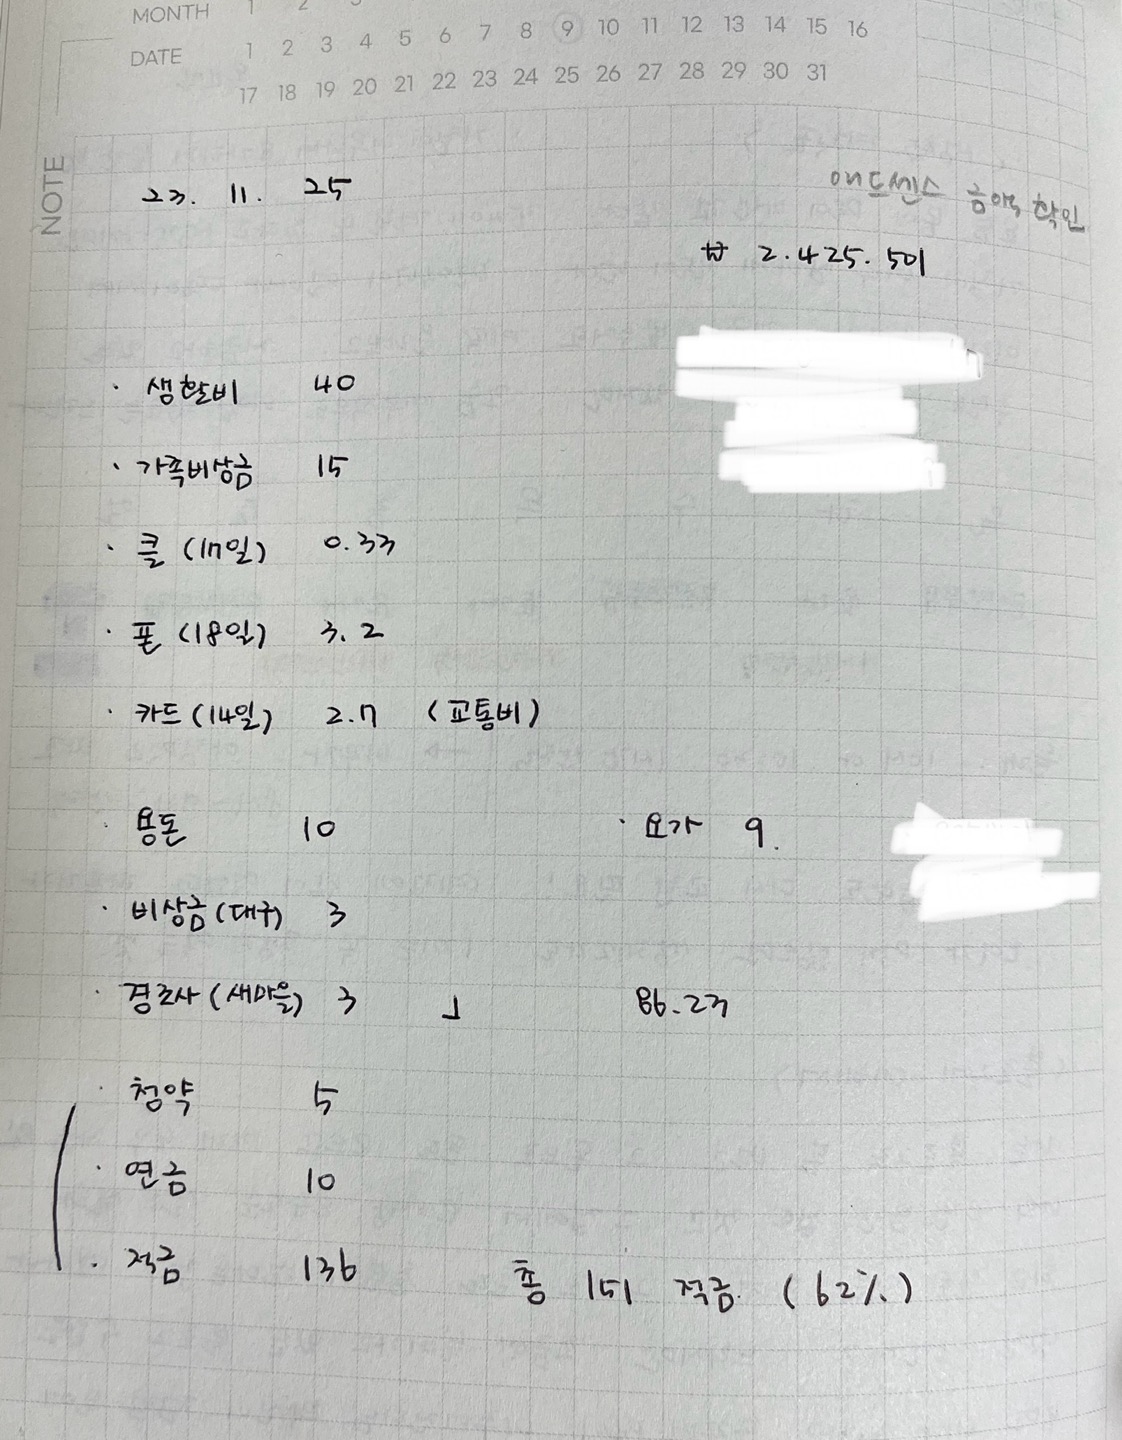 MONTH 1 2 3
DATE 1 2 3 4 5 6 7 8 9 10 11 12 13 14 15 16
17 18 19 20 21 22 23 24 25 26 27 28 29 30 31
NOTE
23. 11. 25
애드센스 금액 확인
₩ 2.425.501
· 생활비 40
· 가족비상금 15
· 클 (17일) 0.33
· 폰 (18일) 3.2
· 카드 (14일) 2.7 (교통비)
· 용돈 10 · 요가 9.
· 비상금 (대구) 3
· 경조사 (새마을) 3 」 86.23
· 청약 5
· 연금 10
· 적금 136 총 151 적금. (62%)